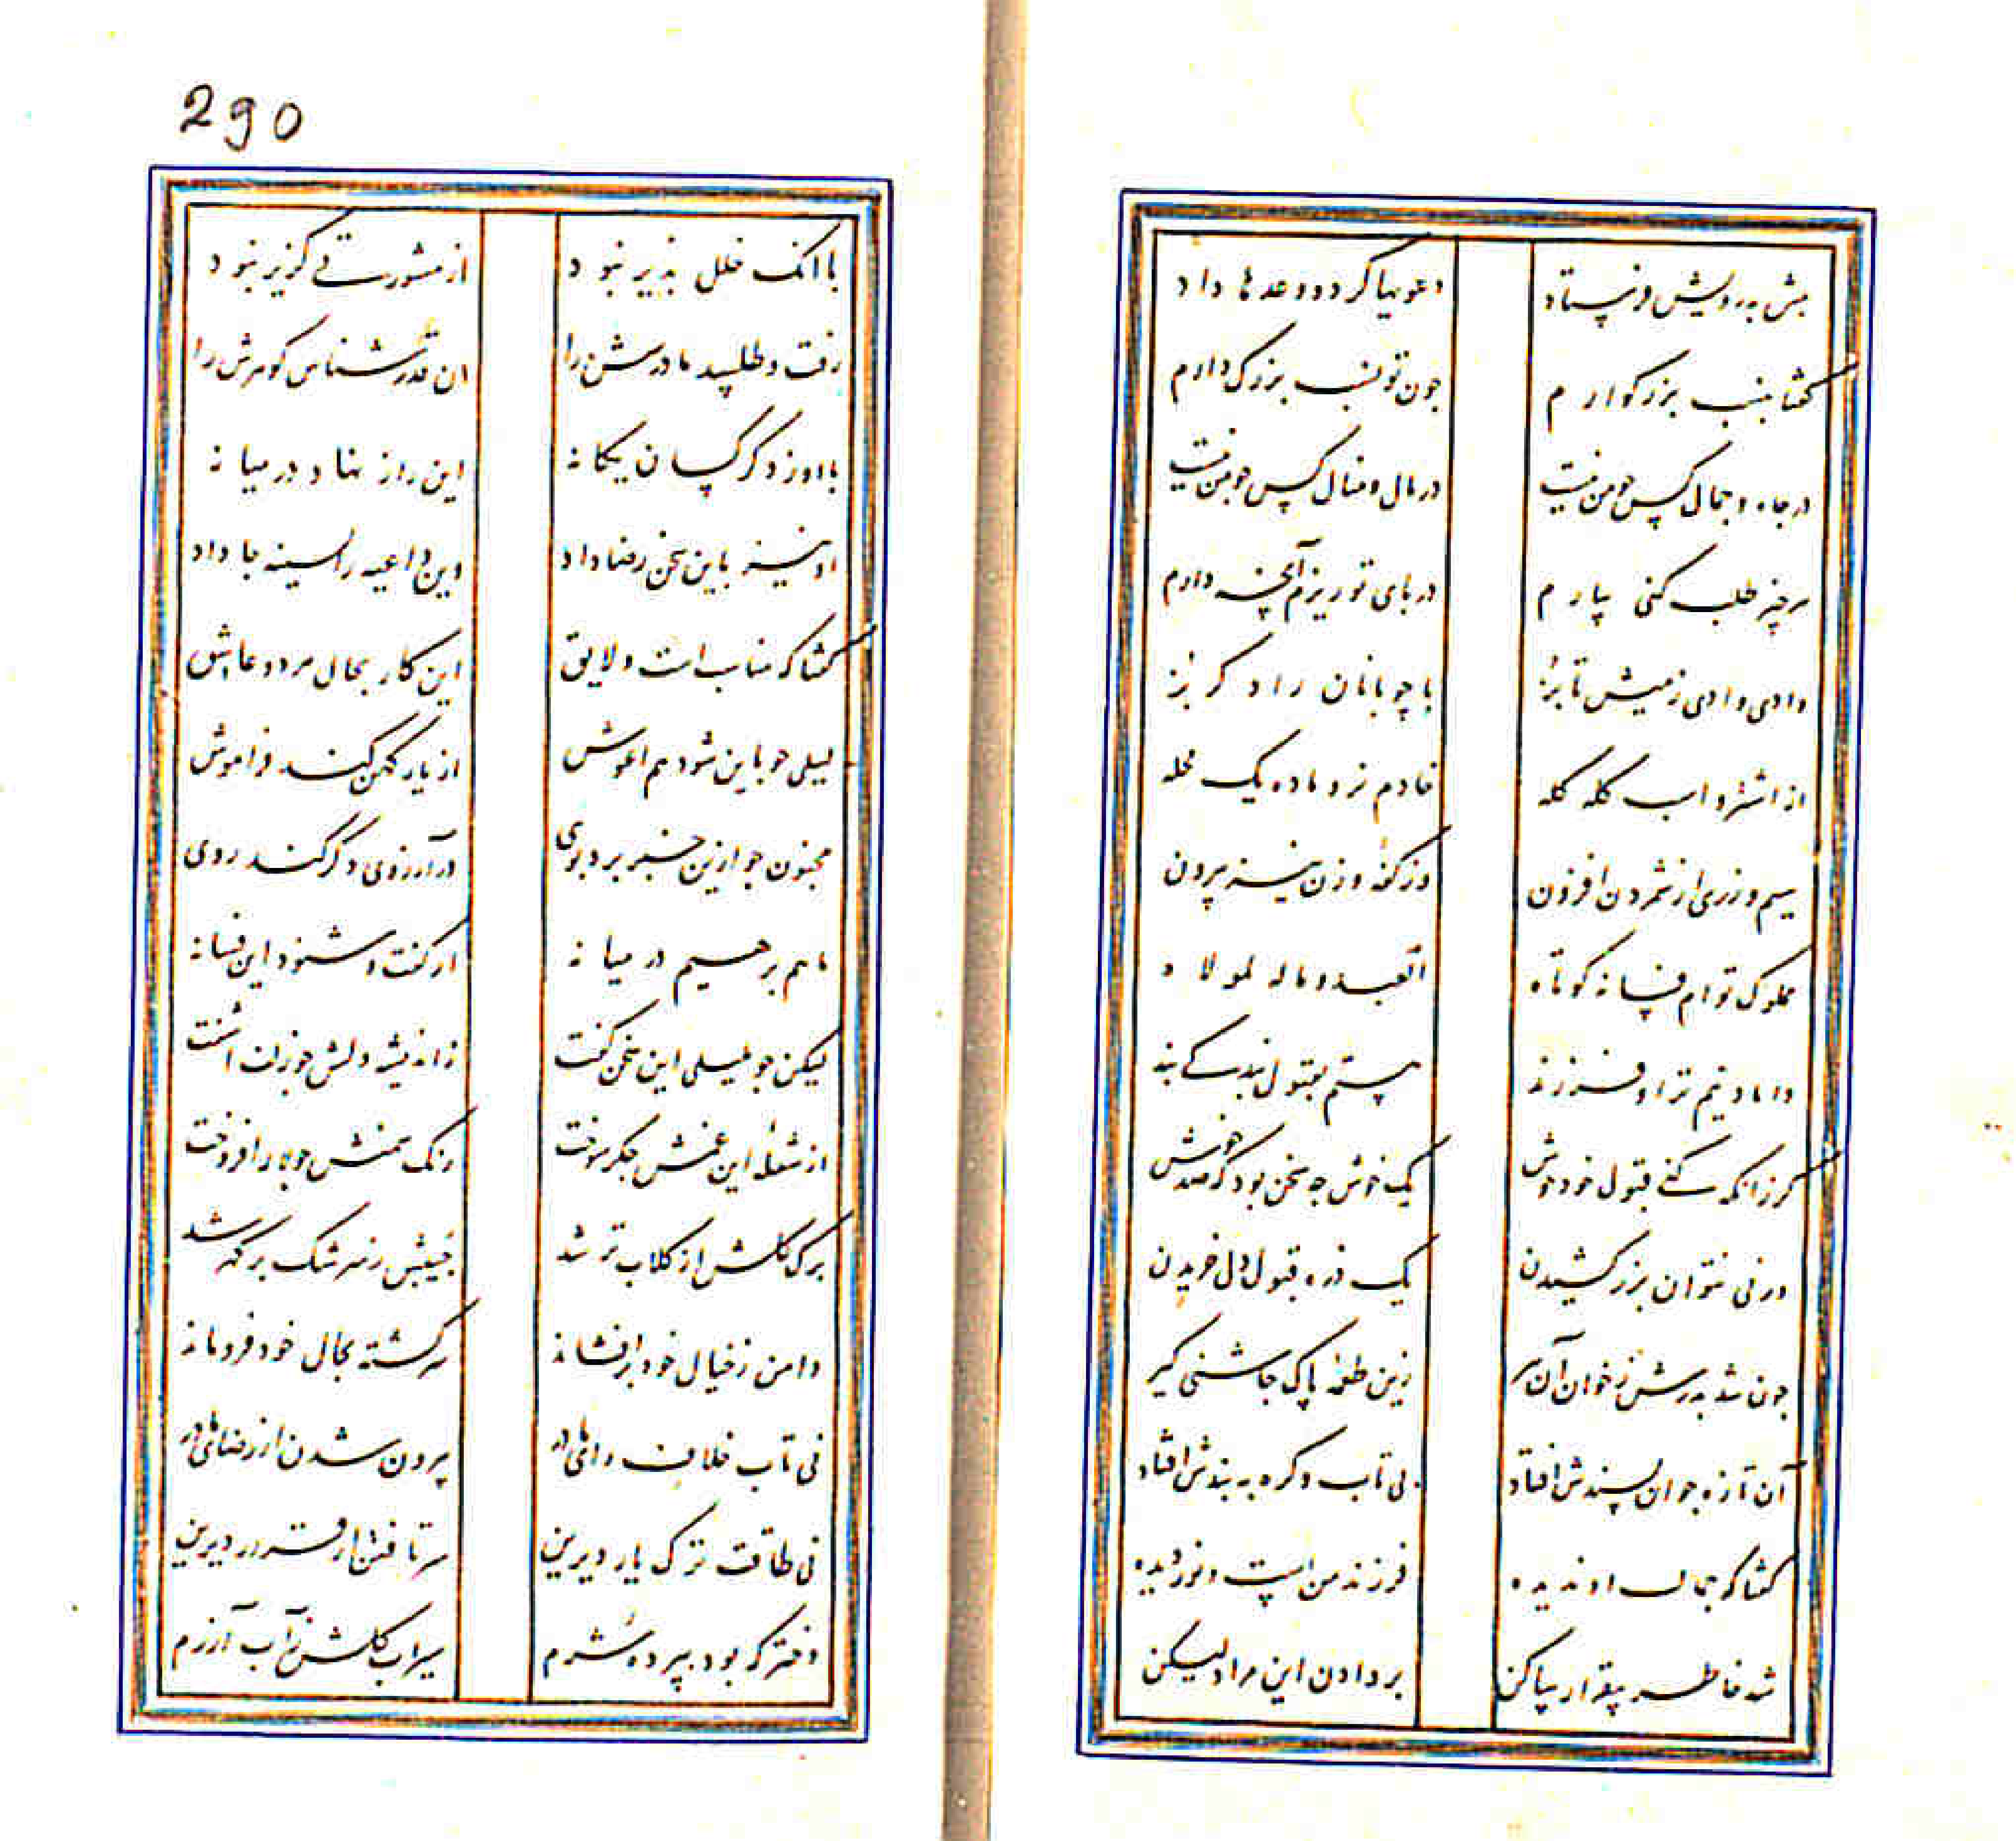 پیش پدرش فرستاد دعویها کرد و وعدها داد
گفتا بنسب بزرکوارم جون تو نسب بزرک دارم
در جاه و جمال کس جو من نیست در مال و منال کس جو من نیست
هر چیز طلب کنی بیارم در پای تو ریزم آنچه دارم
وادی وادی ز میش تا بز با چوبانان راد کربز
از اشتر و اسب کله کله خادم نر و ماده یک محله
سیم و زری از شمردن افزون وز کفهٔ وزن نیز بیرون
مملوک توام فسانه کوتاه العبد و ماله لمولاه
داماد نیم ترا و فرزند هستم بقبول بندکی بند
کر زانکه کنی قبول خود خوش یک خوش جه سخن بود که صد خوش
ور نی نتوان بزر کشیدن یک ذره قبول دل خریدن
جون شد پدرش ز خوان آن میر زین طعمه پاک جاشنی کیر
آن تازه جوان پسندش افتاد بی تاب و کره به بندش افتاد
کفتا که جمال او ندیده فرزند من است و نور دیده
شد خاطر بیقرار ساکن بر دادن این مراد لیکن
290
با آنک خلل پذیر نبود از مشورتی کزیر نبود
رفت و طلبید مادرش را ان قدر شناس کوهرش را
با او ز دکر کسان یکانه این راز نهاد در میانه
او نیز باین سخن رضا داد وین داعیه را بسینه جا داد
کفتا که مناسب است و لایق این کار بحال مرد و عاشق
لیلی جو باین شود هم اغوش از یار کهن کند فراموش
مجنون جو ازین خبر برد بوی در آرزوی دکر کند روی
ما هم برهیم در میانه از کفت و شنود این فسانه
لیکن جو بلیلی این سخن کفت ز اندیشه دلش جو زلف اشفت
از شعلهٔ این غمش جکر سوخت رنک سمنش جو لاله افروخت
برک کلش از کلاب تر شد جیبش ز سرشک پر کهر شد
دامن ز خیال خود بر افشاند سرکشته بحال خود فرو ماند
نی تاب خلاف رای مادر بیرون شدن از رضای مادر
نی طاقت ترک یار دیرین سر تافتن از قرار دیرین
دختر که بود بپرده شرم سیراب کلش ز آب آزرم